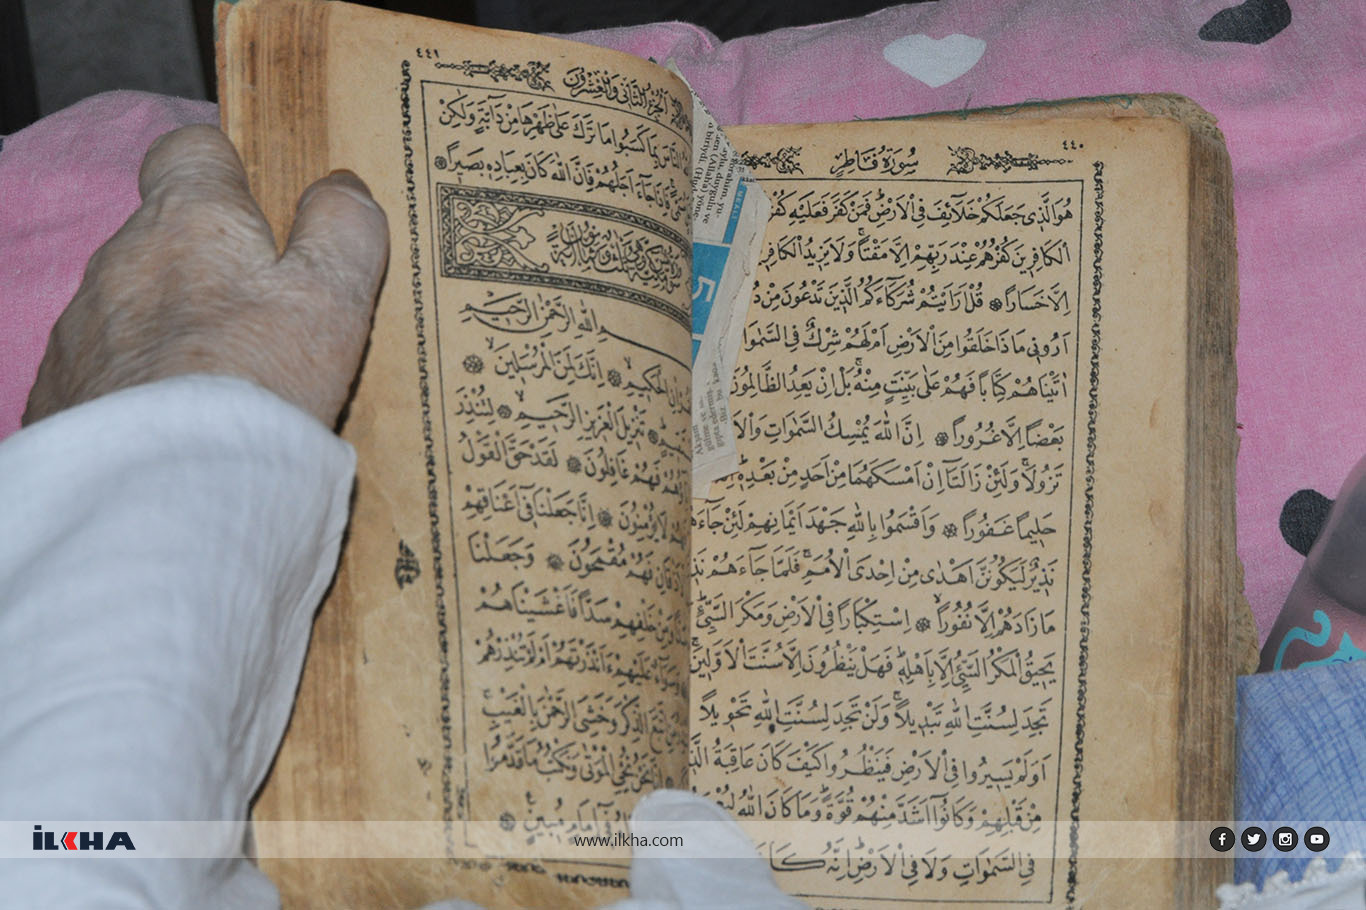 ٤٤٠
سُورَةُ فَاطِرٍ
هُوَ الَّذٖى جَعَلَكُمْ خَلَٓائِفَ فِى الْاَرْضِ فَمَنْ كَفَرَ فَعَلَيْهِ كُفْرُ
الْكَافِرٖينَ كُفْرُهُمْ عِنْدَ رَبِّهِمْ اِلَّا مَقْتًا وَلَا يَزٖيدُ الْكَافِرٖ
اِلَّا خَسَارًا ۞ قُلْ رَاَيْتُمْ شُرَكَٓاءَكُمُ الَّذٖينَ تَدْعُونَ مِنْ
اَرُونٖى مَاذَا خَلَقُوا مِنَ الْاَرْضِ اَمْ لَهُمْ شِرْكٌ فِى السَّمٰوَا
اٰتَيْنَاهُمْ كِتَابًا فَهُمْ عَلٰى بَيِّنَتٍ مِنْهُ بَلْ اِنْ يَعِدُ الظَّالِمُونَ
بَعْضًا اِلَّا غُرُورًا ۞ اِنَّ اللّٰهَ يُمْسِكُ السَّمٰوَاتِ وَالْا
تَزُولَا وَلَئِنْ زَالَتَٓا اِنْ اَمْسَكَهُمَا مِنْ اَحَدٍ مِنْ بَعْدِهٖ
حَلٖيمًا غَفُورًا ۞ وَاَقْسَمُوا بِاللّٰهِ جَهْدَ اَيْمَانِهِمْ لَئِنْ جَٓاءَ
نَذٖيرٌ لَيَكُونُنَّ اَهْدٰى مِنْ اِحْدَى الْاُمَمِ فَلَمَّا جَٓاءَهُمْ نَذ
مَازَادَهُمْ اِلَّا نُفُورًا ۞ اِسْتِكْبَارًا فِى الْاَرْضِ وَمَكْرَ السَّيِّئِ
يَحٖيقُ الْمَكْرُ السَّيِّئُ اِلَّا بِاَهْلِهٖ فَهَلْ يَنْظُرُونَ اِلَّا سُنَّتَ الْاَوَّلٖينَ
تَجِدَ لِسُنَّتِ اللّٰهِ تَبْدٖيلًا وَلَنْ تَجِدَ لِسُنَّتِ اللّٰهِ تَحْوٖيلًا
اَوَلَمْ يَسٖيرُوا فِى الْاَرْضِ فَيَنْظُرُوا كَيْفَ كَانَ عَاقِبَةُ الَّذ
مِنْ قَبْلِهِمْ وَكَانُٓوا اَشَدَّ مِنْهُمْ قُوَّةً وَمَا كَانَ اللّٰهُ لِيُعْ
فِى السَّمٰوَاتِ وَلَا فِى الْاَرْضِ اِنَّهُ كَانَ
٤٤١
اَلْجُزْءُ الثَّانٖى وَالْعِشْرُونَ
النَّاسَ بِمَا كَسَبُوا مَا تَرَكَ عَلٰى ظَهْرِهَا مِنْ دَٓابَّةٍ وَلٰكِنْ
فَاِذَا جَٓاءَ اَجَلُهُمْ فَاِنَّ اللّٰهَ كَانَ بِعِبَادِهٖ بَصٖيرًا ۞
اللّٰهِ الرَّحْمٰنِ الرَّحٖيمِ
الْحَكٖيمِ ۞ اِنَّكَ لَمِنَ الْمُرْسَلٖينَ ۞
تَنْزٖيلَ الْعَزٖيزِ الرَّحٖيمِ ۞ لِتُنْذِرَ
فَهُمْ غَافِلُونَ ۞ لَقَدْ حَقَّ الْقَوْلُ
لَا يُؤْمِنُونَ ۞ اِنَّا جَعَلْنَا فٖٓى اَعْنَاقِهِمْ
فَهُمْ مُقْمَحُونَ ۞ وَجَعَلْنَا
وَمِنْ خَلْفِهِمْ سَدًّا فَاَغْشَيْنَاهُمْ
وَسَوَٓاءٌ عَلَيْهِمْ ءَاَنْذَرْتَهُمْ اَمْ لَمْ تُنْذِرْهُمْ
الذِّكْرَ وَخَشِىَ الرَّحْمٰنَ بِالْغَيْبِ
نُحْيِى الْمَوْتٰى وَنَكْتُبُ مَا قَدَّمُوا
اِمَامٍ مُبٖينٍ ۞
5
MEALİ
İLKHA
www.ilkha.com